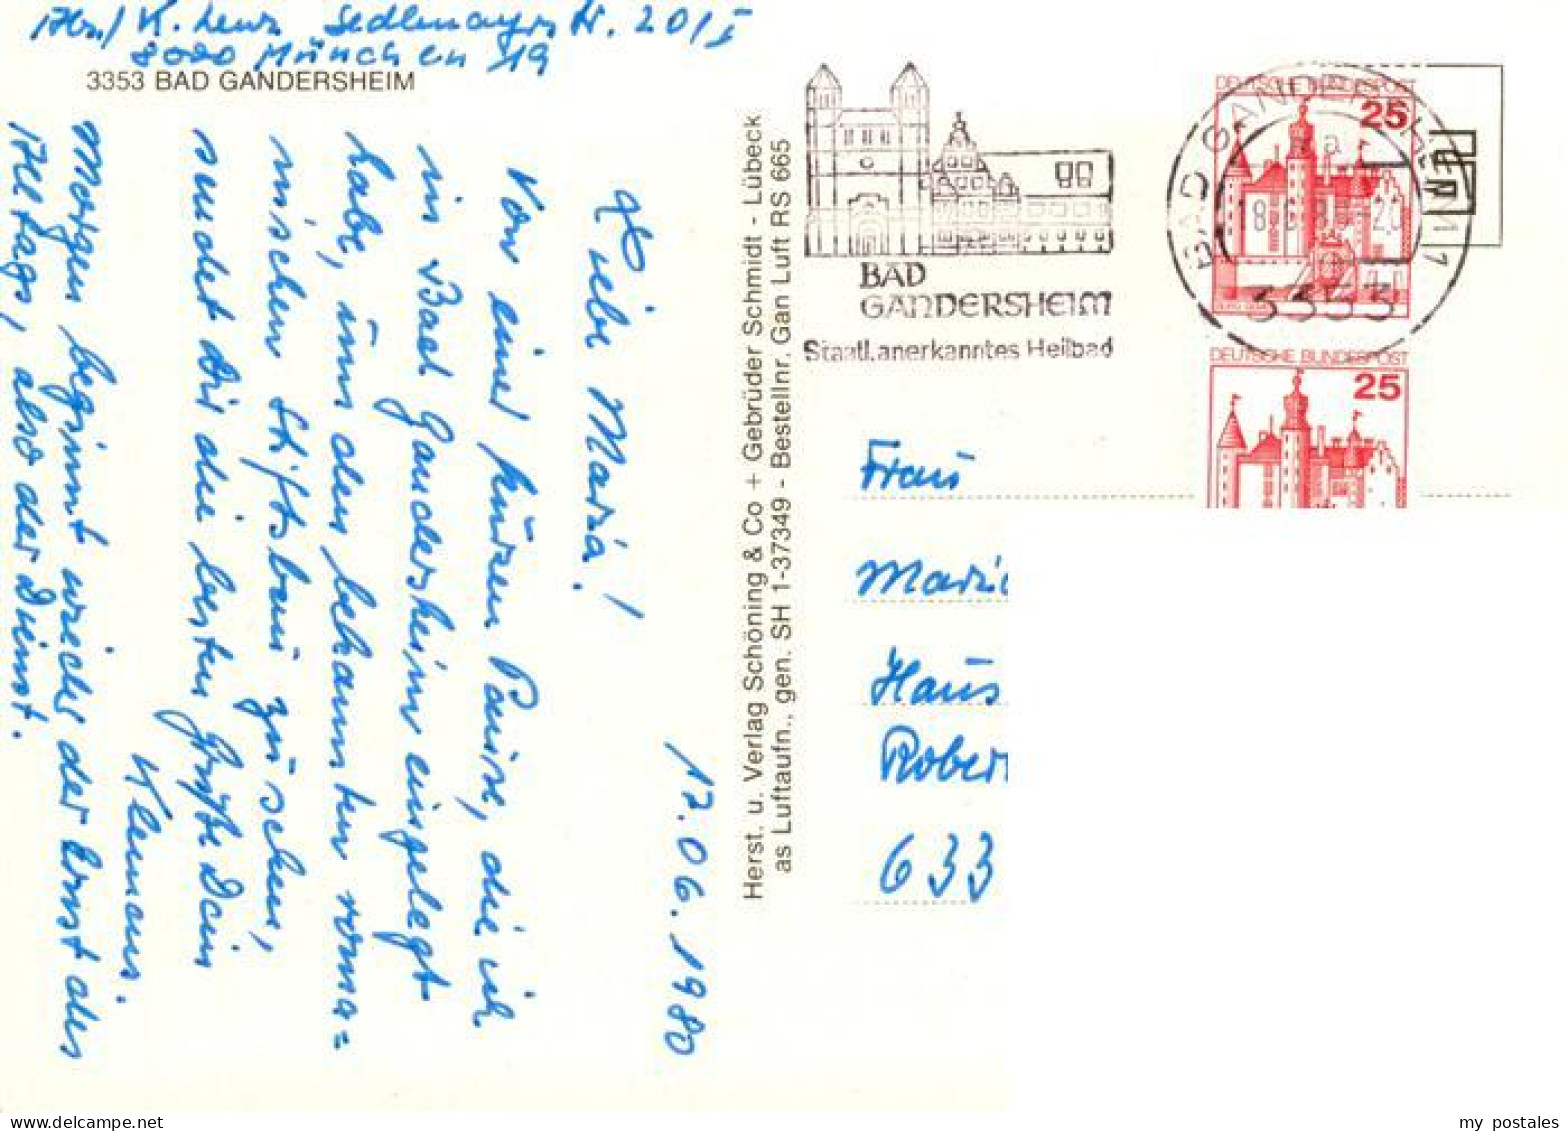 Abs./ K. Lenz Sedlmayrstr. 20/I
8000 München 19
3353 BAD GANDERSHEIM
17.06.1980
Liebe Maria!
Von einer kurzen Pause, die ich
in Bad Gandersheim eingelegt
habe, um den bekannten roma=
nischen Stiftsbau zu sehen,
sendet Dir die besten Grüße Dein
Klemens.
Morgen beginnt wieder der Ernst des
Alltags, also der Dienst.
Herst. u. Verlag Schöning & Co + Gebrüder Schmidt - Lübeck
as Luftaufn., gen. SH 1-37349 - Bestellnr. Gan Luft RS 665
BAD
GANDERSHEIM
Staatl. anerkanntes Heilbad
DEUTSCHE BUNDESPOST
25
BAD GANDERSHEIM 1
3353
DEUTSCHE BUNDESPOST
25
Frau
Maria
Haus
Rober
633
my postales